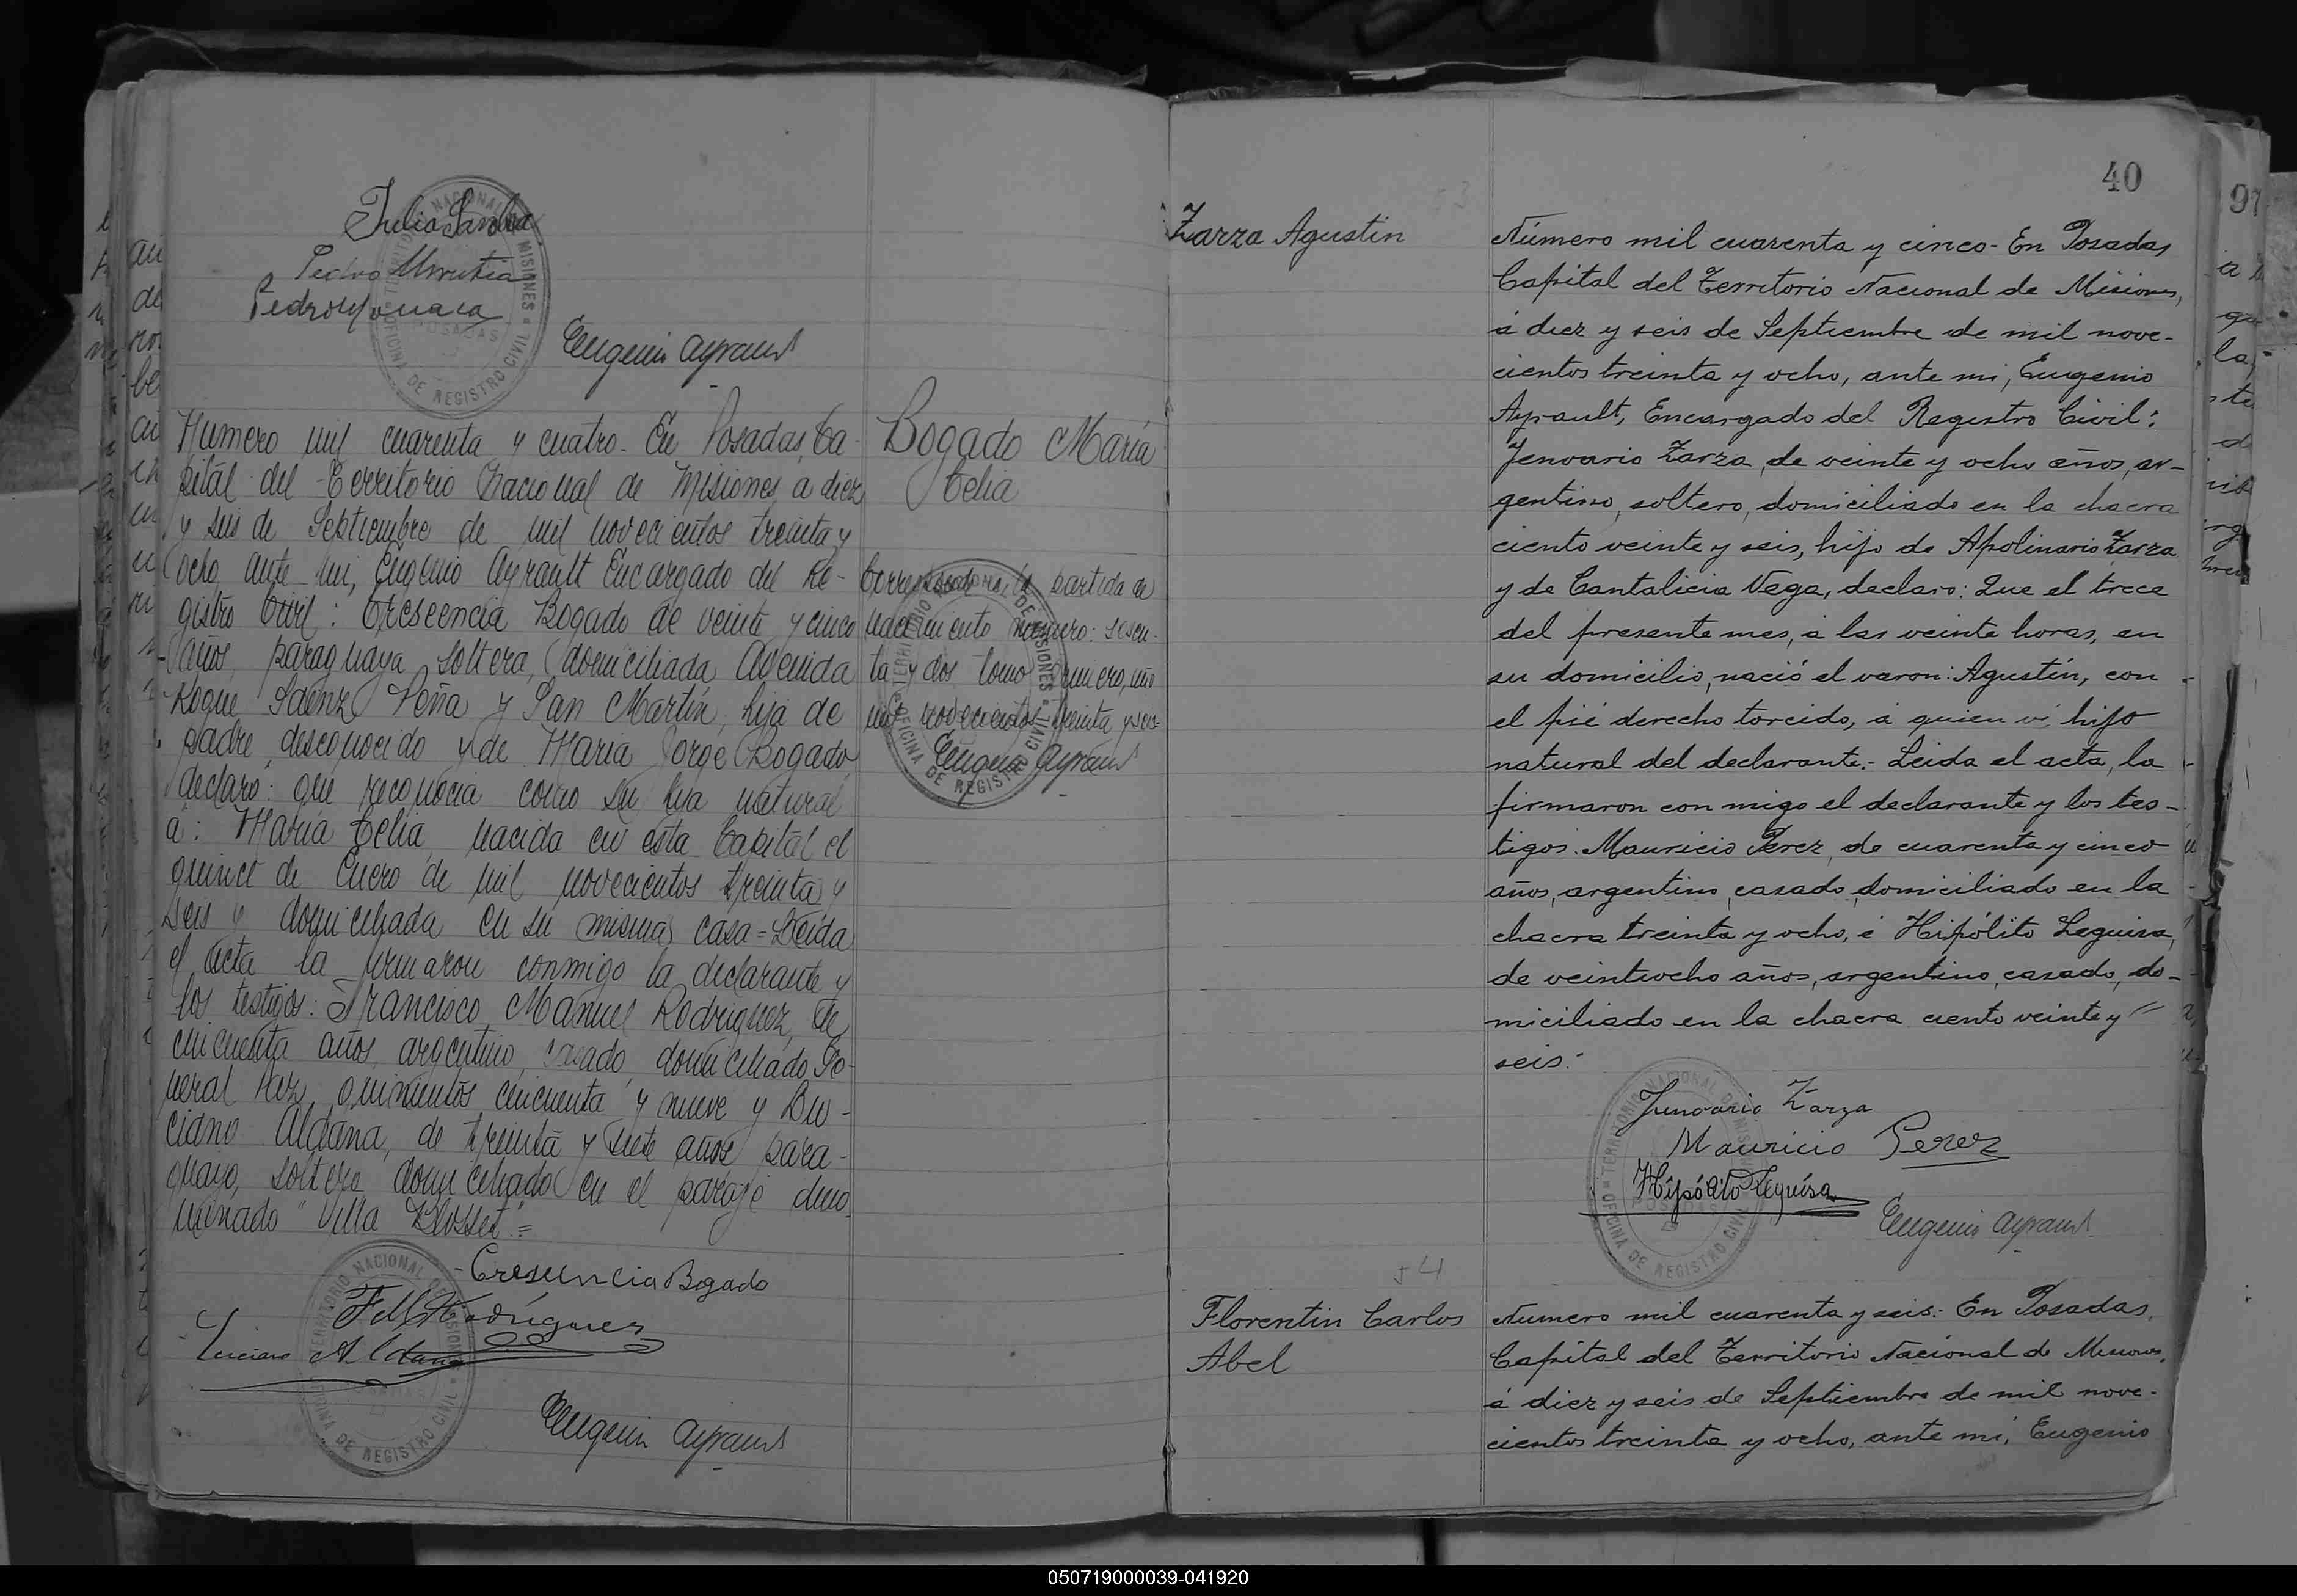 Julia Sanabria
Pedro Urrutia
Eugenio Ayrault
Numero mil cuarenta y cuatro - En Posadas, Ca-
pital del Territorio Nacional de Misiones, a diez
y seis de Septiembre de mil novecientos treinta y
ocho, ante mi, Eugenio Ayrault Encargado del Re-
gistro Civil: Crescencia Bogado de veinte y cinco
años, paraguaya, soltera, domiciliada Avenida
Roque Saénz Peña y San Martín, hija de
padre desconocido y de María Jorge Bogado,
declaró: que reconocia como su hija natural
a: María Celia, nacida en esta Capital el
quince de Enero de mil novecientos treinta y
seis y domiciliada en su misma casa = Leida
el acta la firmaron conmigo la declarante y
los testigos: Francisco Manuel Rodriguez, de
cincuenta años, argentino, casado, domiciliado Ge-
neral Paz quinientos cincuenta y nueve y Lu-
ciano Aldana, de treinta y siete años para-
guayo, soltero domiciliado en el paraje deno-
minado "Villa Blosset" =
Crescencia Bogado
F M Rodríguez
Luciano Aldana
Eugenio Ayrault
Bogado María
Celia
Corresponde a la partida de
nacimiento número: sesen-
ta y dos tomo primero, año
mil novecientos treinta y seis
Eugenio Ayrault
40
97
53
Zarza Agustin
Número mil cuarenta y cinco - En Posadas,
Capital del Territorio Nacional de Misiones,
á diez y seis de Septiembre de mil nove-
cientos treinta y ocho, ante mi, Eugenio
Ayrault, Encargado del Registro Civil:
Jenuario Zarza, de veinte y ocho años, ar-
gentino, soltero, domiciliado en la chacra
ciento veinte y seis, hijo de Apolinario Zarza
y de Cantalicia Vega, declaró: Que el trece
del presente mes, á las veinte horas, en
su domicilio, nació el varon: Agustín, con
el pié derecho torcido, á quien ví, hijo
natural del declarante.- Leida el acta, la
firmaron con migo el declarante y los tes-
tigos: Mauricio Perez, de cuarenta y cinco
años, argentino, casado, domiciliado en la
chacra treinta y ocho, é Hipólito Leguisa,
de veintiocho años, argentino, casado, do-
miciliado en la chacra ciento veinte y
seis:
Jenuario Zarza
Mauricio Perez
Hipólito Leguísa
Eugenio Ayrault
54
Florentin Carlos
Abel
Numero mil cuarenta y seis: En Posadas,
Capital del Territorio Nacional de Misiones,
á diez y seis de Septiembre de mil nove-
cientos treinta y ocho, ante mí, Eugenio
TERRITORIO NACIONAL DE MISIONES
OFICINA DE REGISTRO CIVIL
POSADAS
050719000039-041920